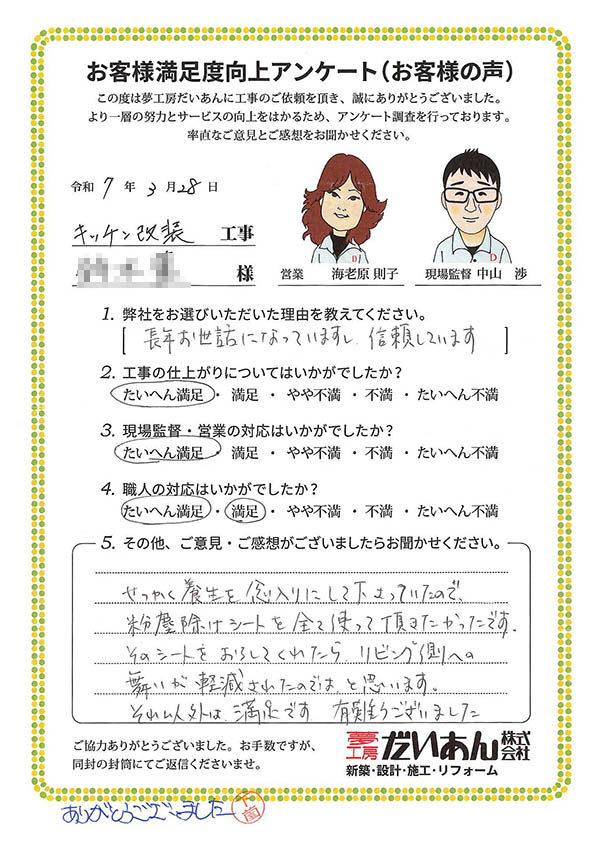 お客様満足度向上アンケート（お客様の声）
この度は夢工房だいあんに工事のご依頼を頂き、誠にありがとうございました。
より一層の努力とサービスの向上をはかるため、アンケート調査を行っております。
率直なご意見とご感想をお聞かせください。
令和 7 年 3 月 28 日
キッチン改装 工事
様
D
D
営業 海老原 則子
現場監督 中山 渉
1. 弊社をお選びいただいた理由を教えてください。
[ 長年お世話になっていますし、信頼しています ]
2. 工事の仕上がりについてはいかがでしたか？
たいへん満足・ 満足 ・ やや不満 ・ 不満 ・ たいへん不満
3. 現場監督・営業の対応はいかがでしたか？
たいへん満足・ 満足 ・ やや不満 ・ 不満 ・ たいへん不満
4. 職人の対応はいかがでしたか？
たいへん満足・ 満足 ・ やや不満 ・ 不満 ・ たいへん不満
5. その他、ご意見・ご感想がございましたらお聞かせください。
せっかく養生を念入りにして下さっていたので、
粉塵除けシートを全て使って頂きたかったです。
そのシートをおろしてくれたら、リビング側への
舞いが軽減されたのでは、と思います。
それ以外は、満足です 有難うございました
ご協力ありがとうございました。お手数ですが、
同封の封筒にてご返信くださいませ。
夢工房 だいあん 株式会社
新築・設計・施工・リフォーム
ありがとうございました